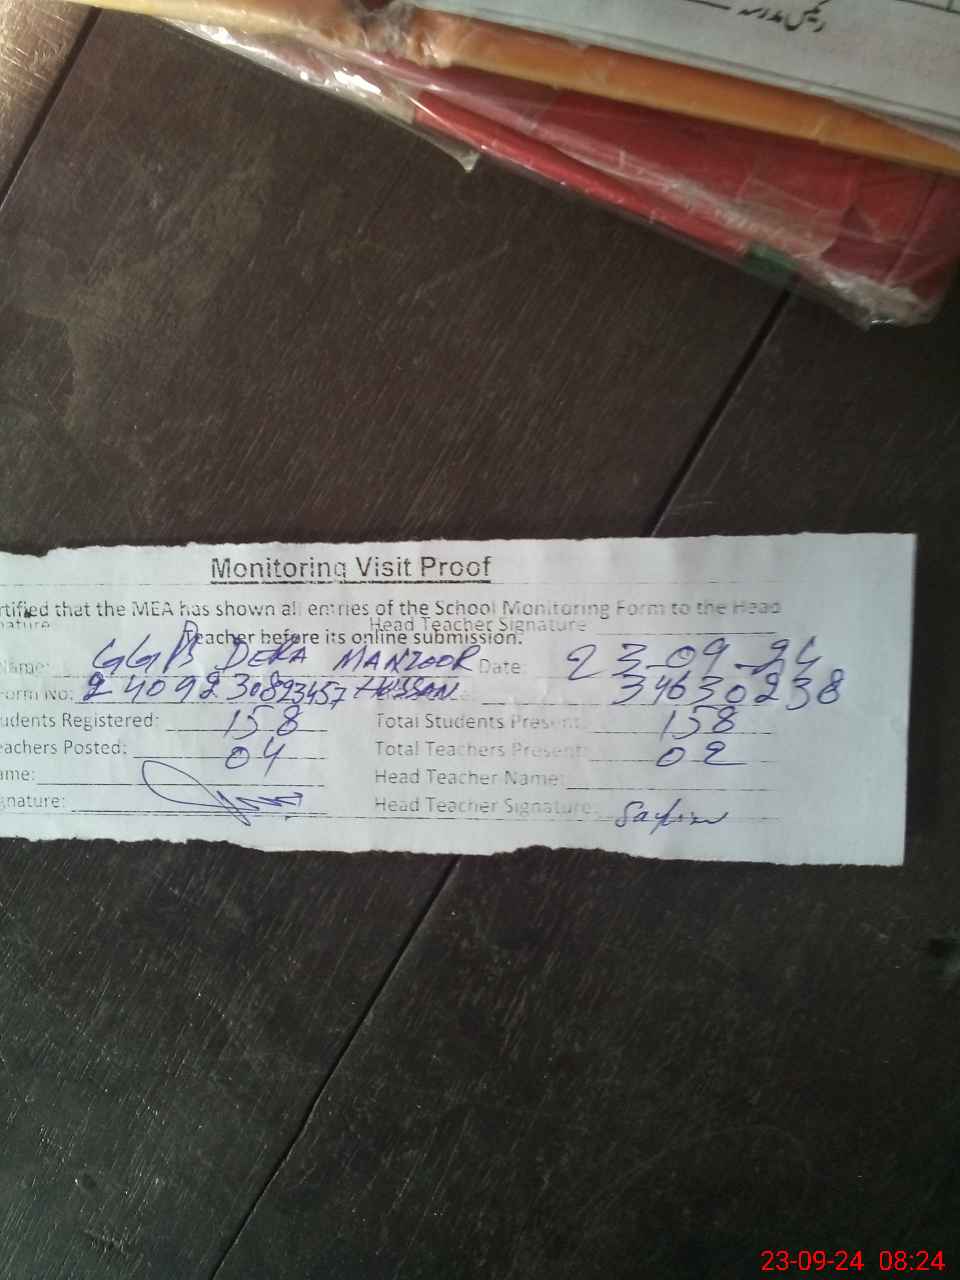 رئیس مدرسہ
Monitoring Visit Proof
rtified that the MEA has shown all entries of the School Monitoring Form to the Head
nature Head Teacher Signature
Teacher before its online submission.
Name: GGPS DERA MANZOOR Date: 23-09-24
Form No: 24092308 HUSSAN 34630238
udents Registered: 158 Total Students Present: 158
eachers Posted: 04 Total Teachers Present: 02
ame: Head Teacher Name:
gnature: Head Teacher Signature:
23-09-24 08:24